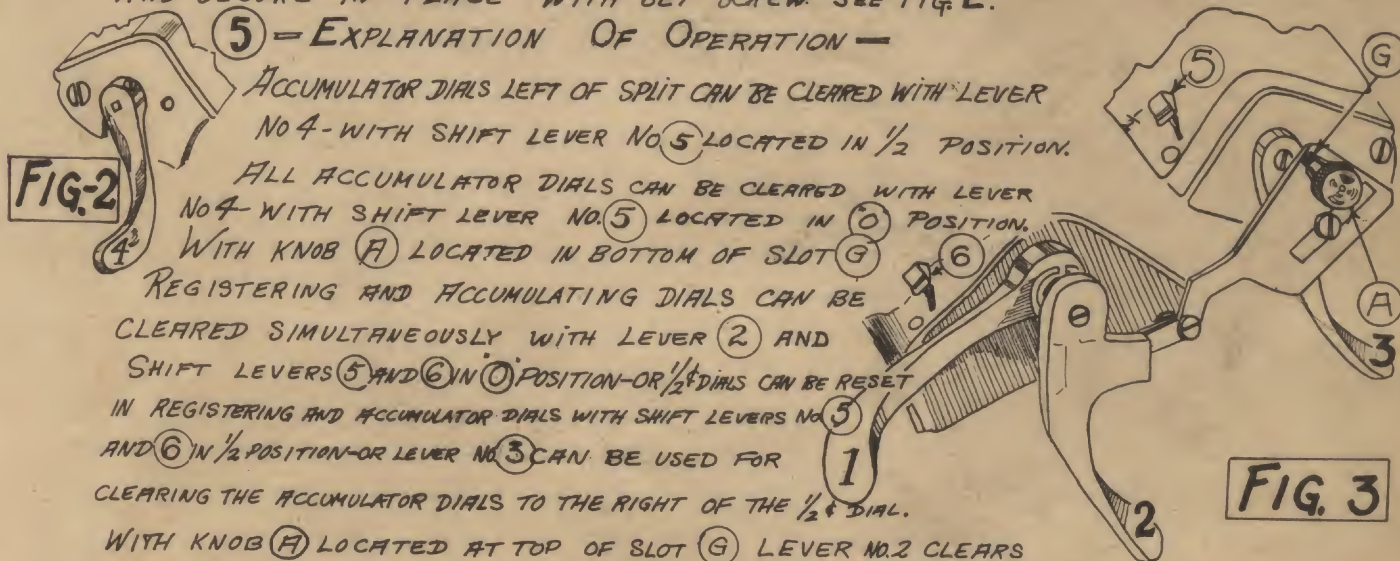 AND SECURE IN PLACE WITH SET SCREW. SEE FIG. 2.
5 = EXPLANATION OF OPERATION =
ACCUMULATOR DIALS LEFT OF SPLIT CAN BE CLEARED WITH LEVER
NO 4 - WITH SHIFT LEVER NO. 5 LOCATED IN 1/2 POSITION.
ALL ACCUMULATOR DIALS CAN BE CLEARED WITH LEVER
NO 4 - WITH SHIFT LEVER NO. 5 LOCATED IN "0" POSITION.
WITH KNOB A LOCATED IN BOTTOM OF SLOT G
REGISTERING AND ACCUMULATING DIALS CAN BE
CLEARED SIMULTANEOUSLY WITH LEVER 2 AND
SHIFT LEVERS 5 AND 6 IN "0" POSITION - OR 1/2¢ DIALS CAN BE RESET
IN REGISTERING AND ACCUMULATOR DIALS WITH SHIFT LEVERS NO 5
AND 6 IN 1/2 POSITION - OR LEVER NO. 3 CAN BE USED FOR
CLEARING THE ACCUMULATOR DIALS TO THE RIGHT OF THE 1/2¢ DIAL.
WITH KNOB A LOCATED AT TOP OF SLOT G LEVER NO. 2 CLEARS
FIG-2
4
G
5
1/2
6
A
3
1
2
FIG. 3